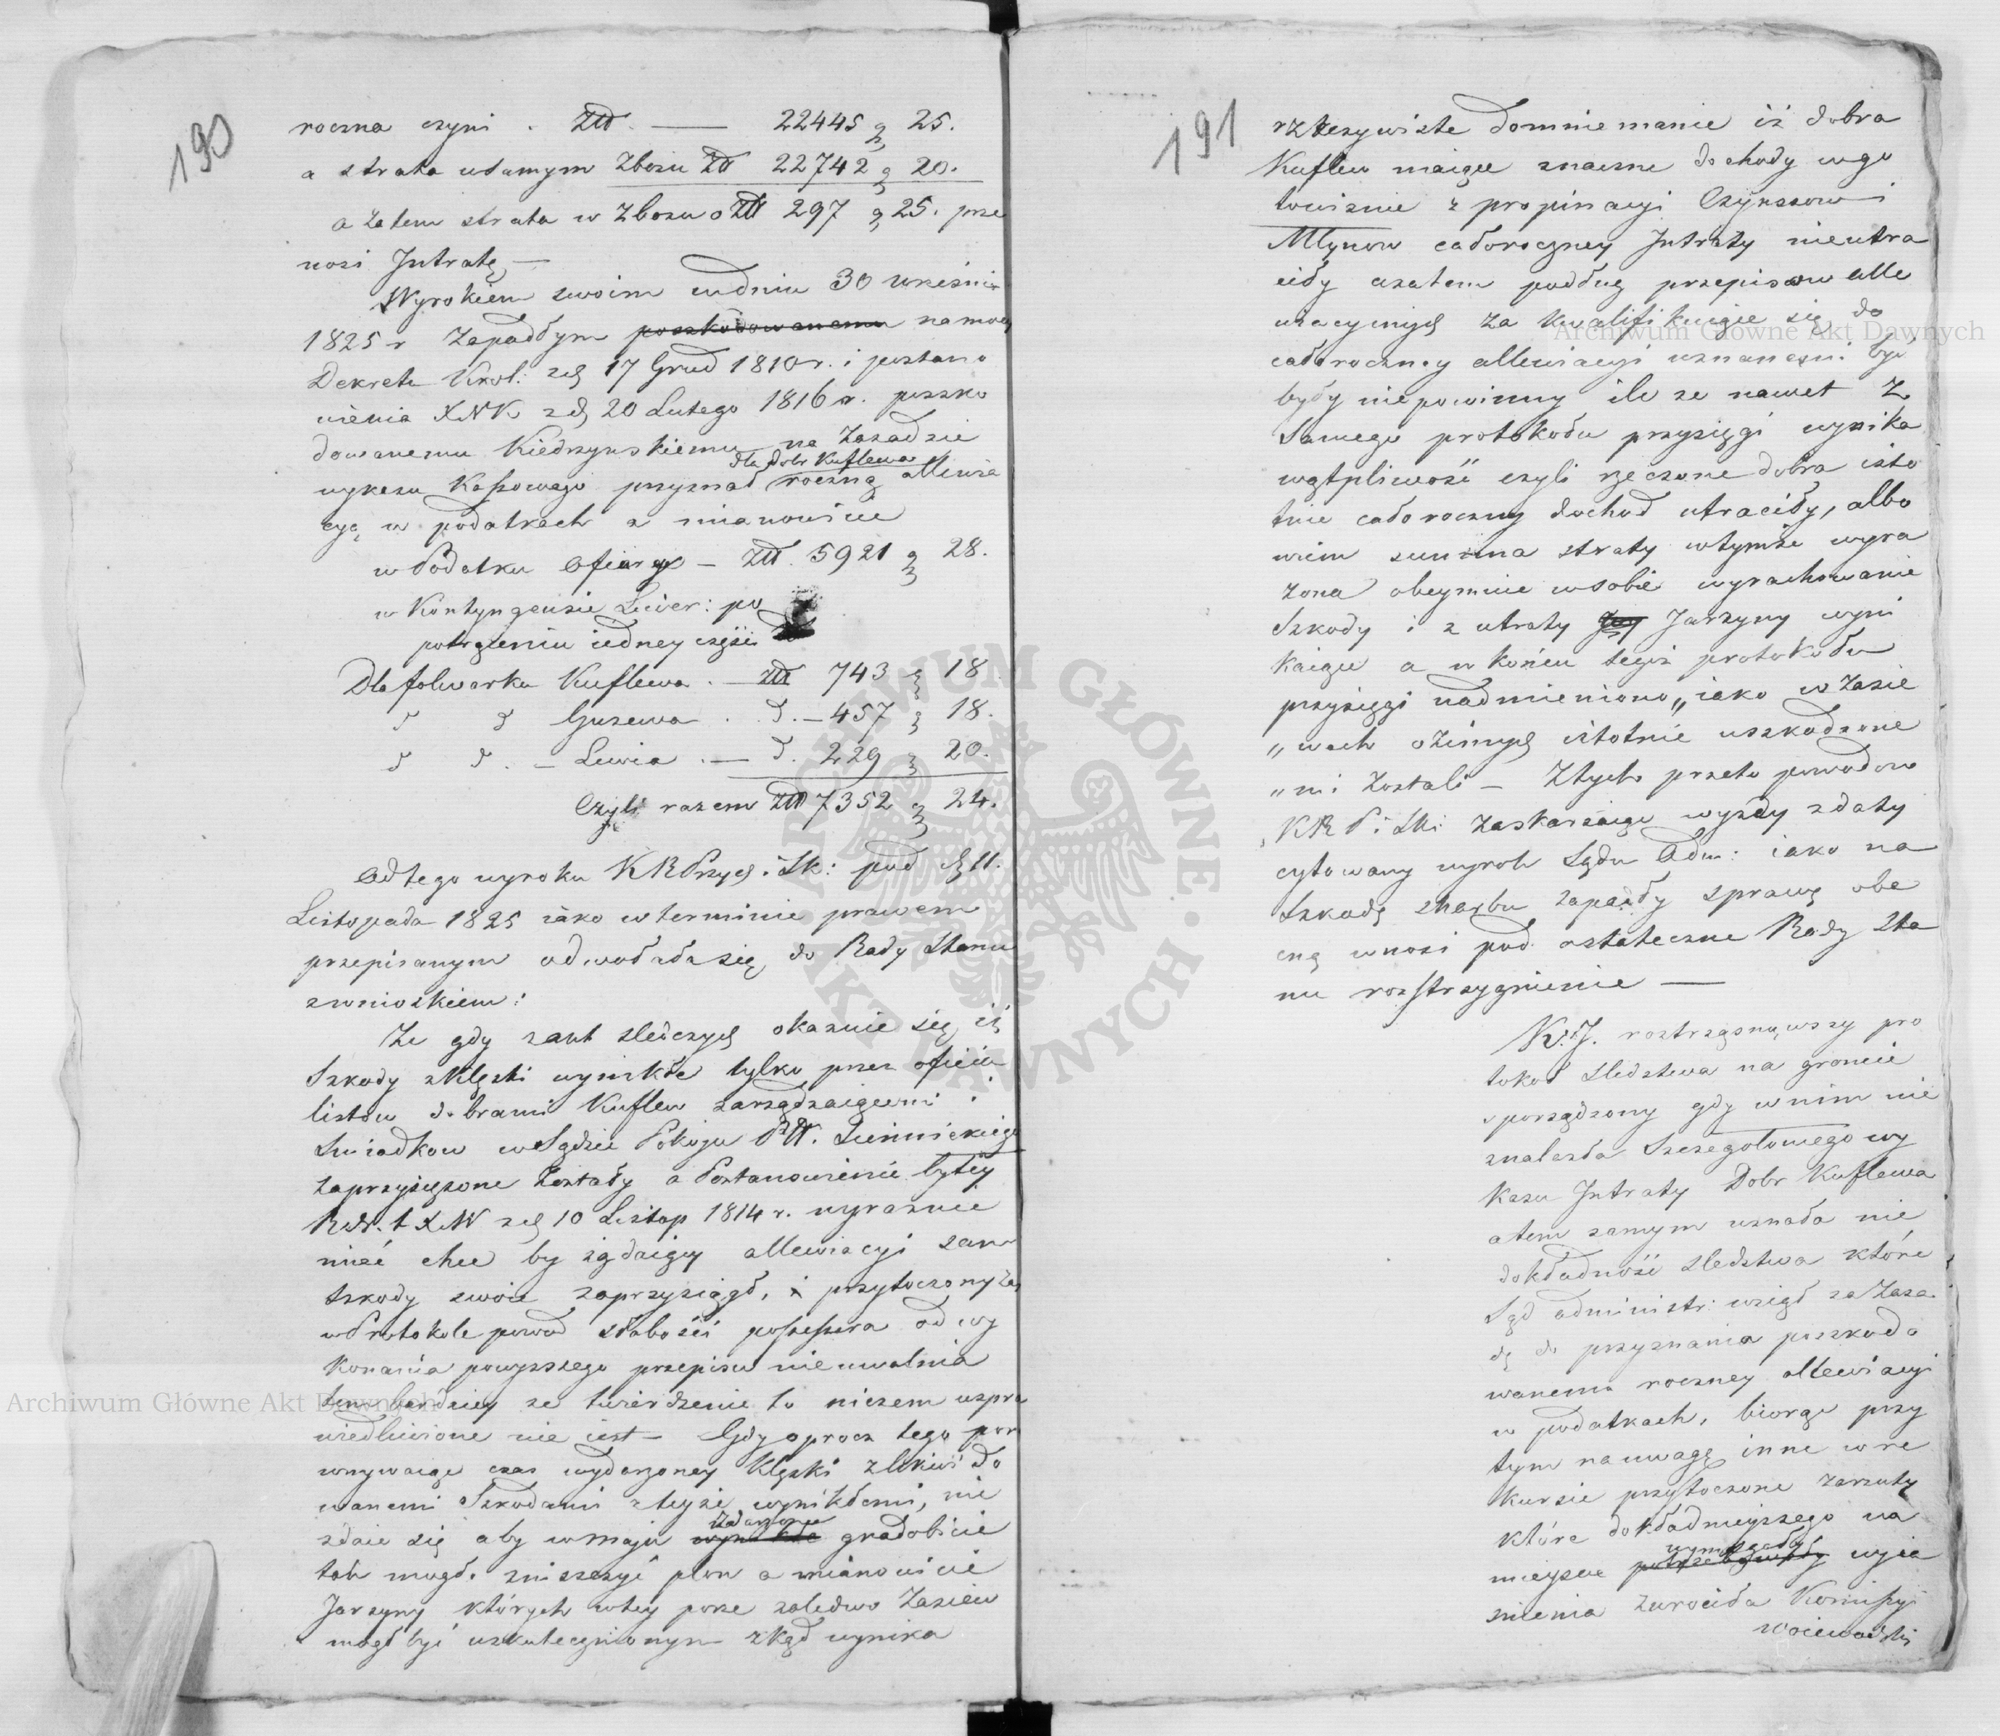 190
roczna czyni . Złł. — 22445 g 25.
a strata w samym Zbożu Zł 22742 g 20.
a zatem strata w Zbożu o Złł 297 g 25. prze
nosi Jntratę, —
Wyrokiem swoim w dniu 30 wrześnir
1825 r zapadłym poszkodowanemu na mocy
Dekretu Król: z d 17 Grud 1810 r. i postano
wienia XNK z d 20 Lutego 1816 r. poszko
dowanemu Kiedrzynskiemu na Zasadzie
dla dobr Kuflewa
wykazu Kassowego przyznał roczną allewia
cyę w podatkach a mianowicie
w Podatku Ofiary — Złł. 5921 g 28.
w Kontyngensie Liwer: po
potrąceniu iedney części
Dla folwarku Kuflewa . — Złł 743 g 18
d d Guzewa . d. — 457 g 18.
d d. — Lewia . — d. 229 g 20.
Czyli razem Złł 7352 g 24.
Od tego wyroku KRPrzych. i Sk: pod d 11.
Listopada 1825 iako w terminie prawem
przepisanym odwołała się, do Rady Stanu
z wnioskiem:
Że gdy z akt śledczych okazuie się, iż
Szkody z klęski wynikłe tylko przez oficia
listów dobrami Kuflew zarządzaiącemi i
Swiadkow w Sądzie Pokoju Pttu. Siennickiego
zaprzysiężone Zostały a Postanowienie byłey
R. N. t XW z d 10 Listop 1814 r. wyraznie
mieć chce by żądaiący allewiacyi sam
szkody swoie zaprzysiągł, i przytoczony zaś
w Protokole powod słabości possessera od wy
konania powyższego przepisu nie uwalnia
tem bardziey ze twierdzenie to niczem uspra
wiedliwione nie iest — Gdy oprocz tego por
wnywaiąc czas wydarzoney klęski z likwido
wanemi Szkodami z teyże wynikłemi, nie
zdaie się aby w maju wynikłe gradobicie
zdarzone
tak mogło zniszczyć plon a mianowicie
Jarzyny których w tey porze zaledwo Zasiew
mogł być uskutecznionym zkąd wynika
191
rzeczywiste domniemanie iż dobra
Kuflew maiące znaczne dochody w go
towiznie z propinacyi Czynszow i
Młynow całoroczney Jntraty nieutra
ciły a zatem podług przepisow alle
wiacyinych za kwalifikuiące się do
całoroczney allewiacyi uznanemi być
były niepowinny ile ze nawet z
Samego protokołu przysięgi wynika
wątpliwość czyli rzeczone dobra isto
tnie całoroczny dochod utraciły, albo
wiem summa straty w tymże wyra
żona obeymuie w sobie wyrachowanie
Szkody i z utraty Jarzyny wyni
kaiące a w końcu tegoż protokołu
przysięgi nadmieniono „iako w Zasie
„wach ozimych istotnie uszkodzone
„mi Zostali — Z tych przeto powodow
KRP i Sk: zaskarżaiąc wyżey z daty
cytowany wyrok Sądu Adm: iako na
Szkodę skarbu zapadły sprawę obe
cną wnosi pod ostateczne Rady Sta
nu rozstrzygnienie —
K. J. roztrząsnąwszy pro
tokoł śledztwa na gruncie
sporządzony gdy w nim nie
znalazła Szczegołowego wy
kazu Jntraty Dobr Kuflewa
a tem samym uznała nie
dokładność śledztwa które
Sąd administr: wziął za Zasa
dę do przyznania poszkodo
wanemu roczney allewiacyi
w podatkach, biorąc przy
tym na uwagę inne w re
kursie przytoczone zarzuty
które dokładnieyszego na
wymagały
mieysce potrzebowały wyia
snienia zwrociła Kommissyi
Woiewodzki